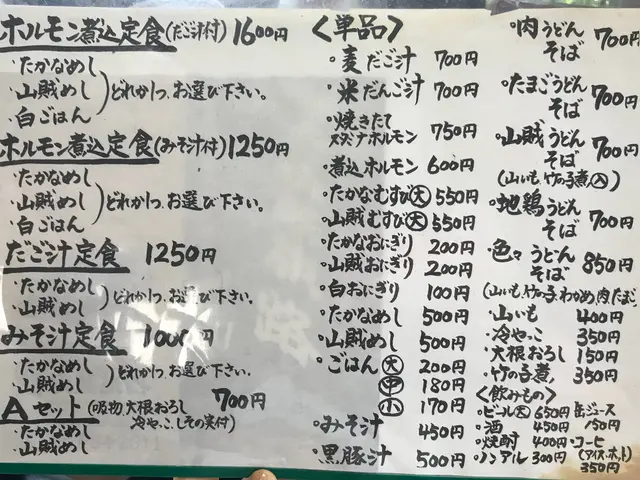 ホルモン煮込定食(だご汁付) 1600円
・たかなめし
・山賊めし
・白ごはん
どれか1つ、お選び下さい。
ホルモン煮込定食(みそ汁付) 1250円
・たかなめし
・山賊めし
・白ごはん
どれか1つ、お選び下さい。
だご汁定食 1250円
・たかなめし
・山賊めし
どれか1つ、お選び下さい。
みそ汁定食 1000円
・たかなめし
・山賊めし
どれか1つ、お選び下さい。
Aセット (吸物、大根おろし 700円
冷やっこ、しその実付)
・たかなめし
・山賊めし
<単品>
・麦だご汁 700円
・米だんご汁 700円
・焼きたて
スタミナホルモン 750円
・煮込ホルモン 600円
・たかなむすび(大) 550円
・山賊むすび(大) 550円
・たかなおにぎり 200円
・山賊おにぎり 200円
・白おにぎり 100円
・たかなめし 500円
・山賊めし 500円
・ごはん(大) 200円
(中) 180円
(小) 170円
・みそ汁 450円
・黒豚汁 500円
・肉うどん
そば 700円
・たまごうどん
そば 700円
・山賊うどん
そば 700円
(山いも、竹の子煮入)
・地鶏うどん
そば 700円
・色々うどん
そば 850円
(山いも、竹の子、わかめ、肉、たまご)
・山いも 400円
・冷やっこ 350円
・大根おろし 150円
・竹の子煮 350円
<飲みもの>
・ビール(大) 650円
・酒 450円
・焼酎 400円
・ノンアル 300円
・缶ジュース
150円
・コーヒ
(アイス・ホット)
350円